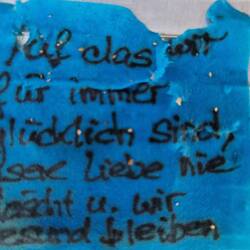 Auf das wir
für immer
glücklich sind,
sere Liebe nie
löscht u. wir
esund bleiben